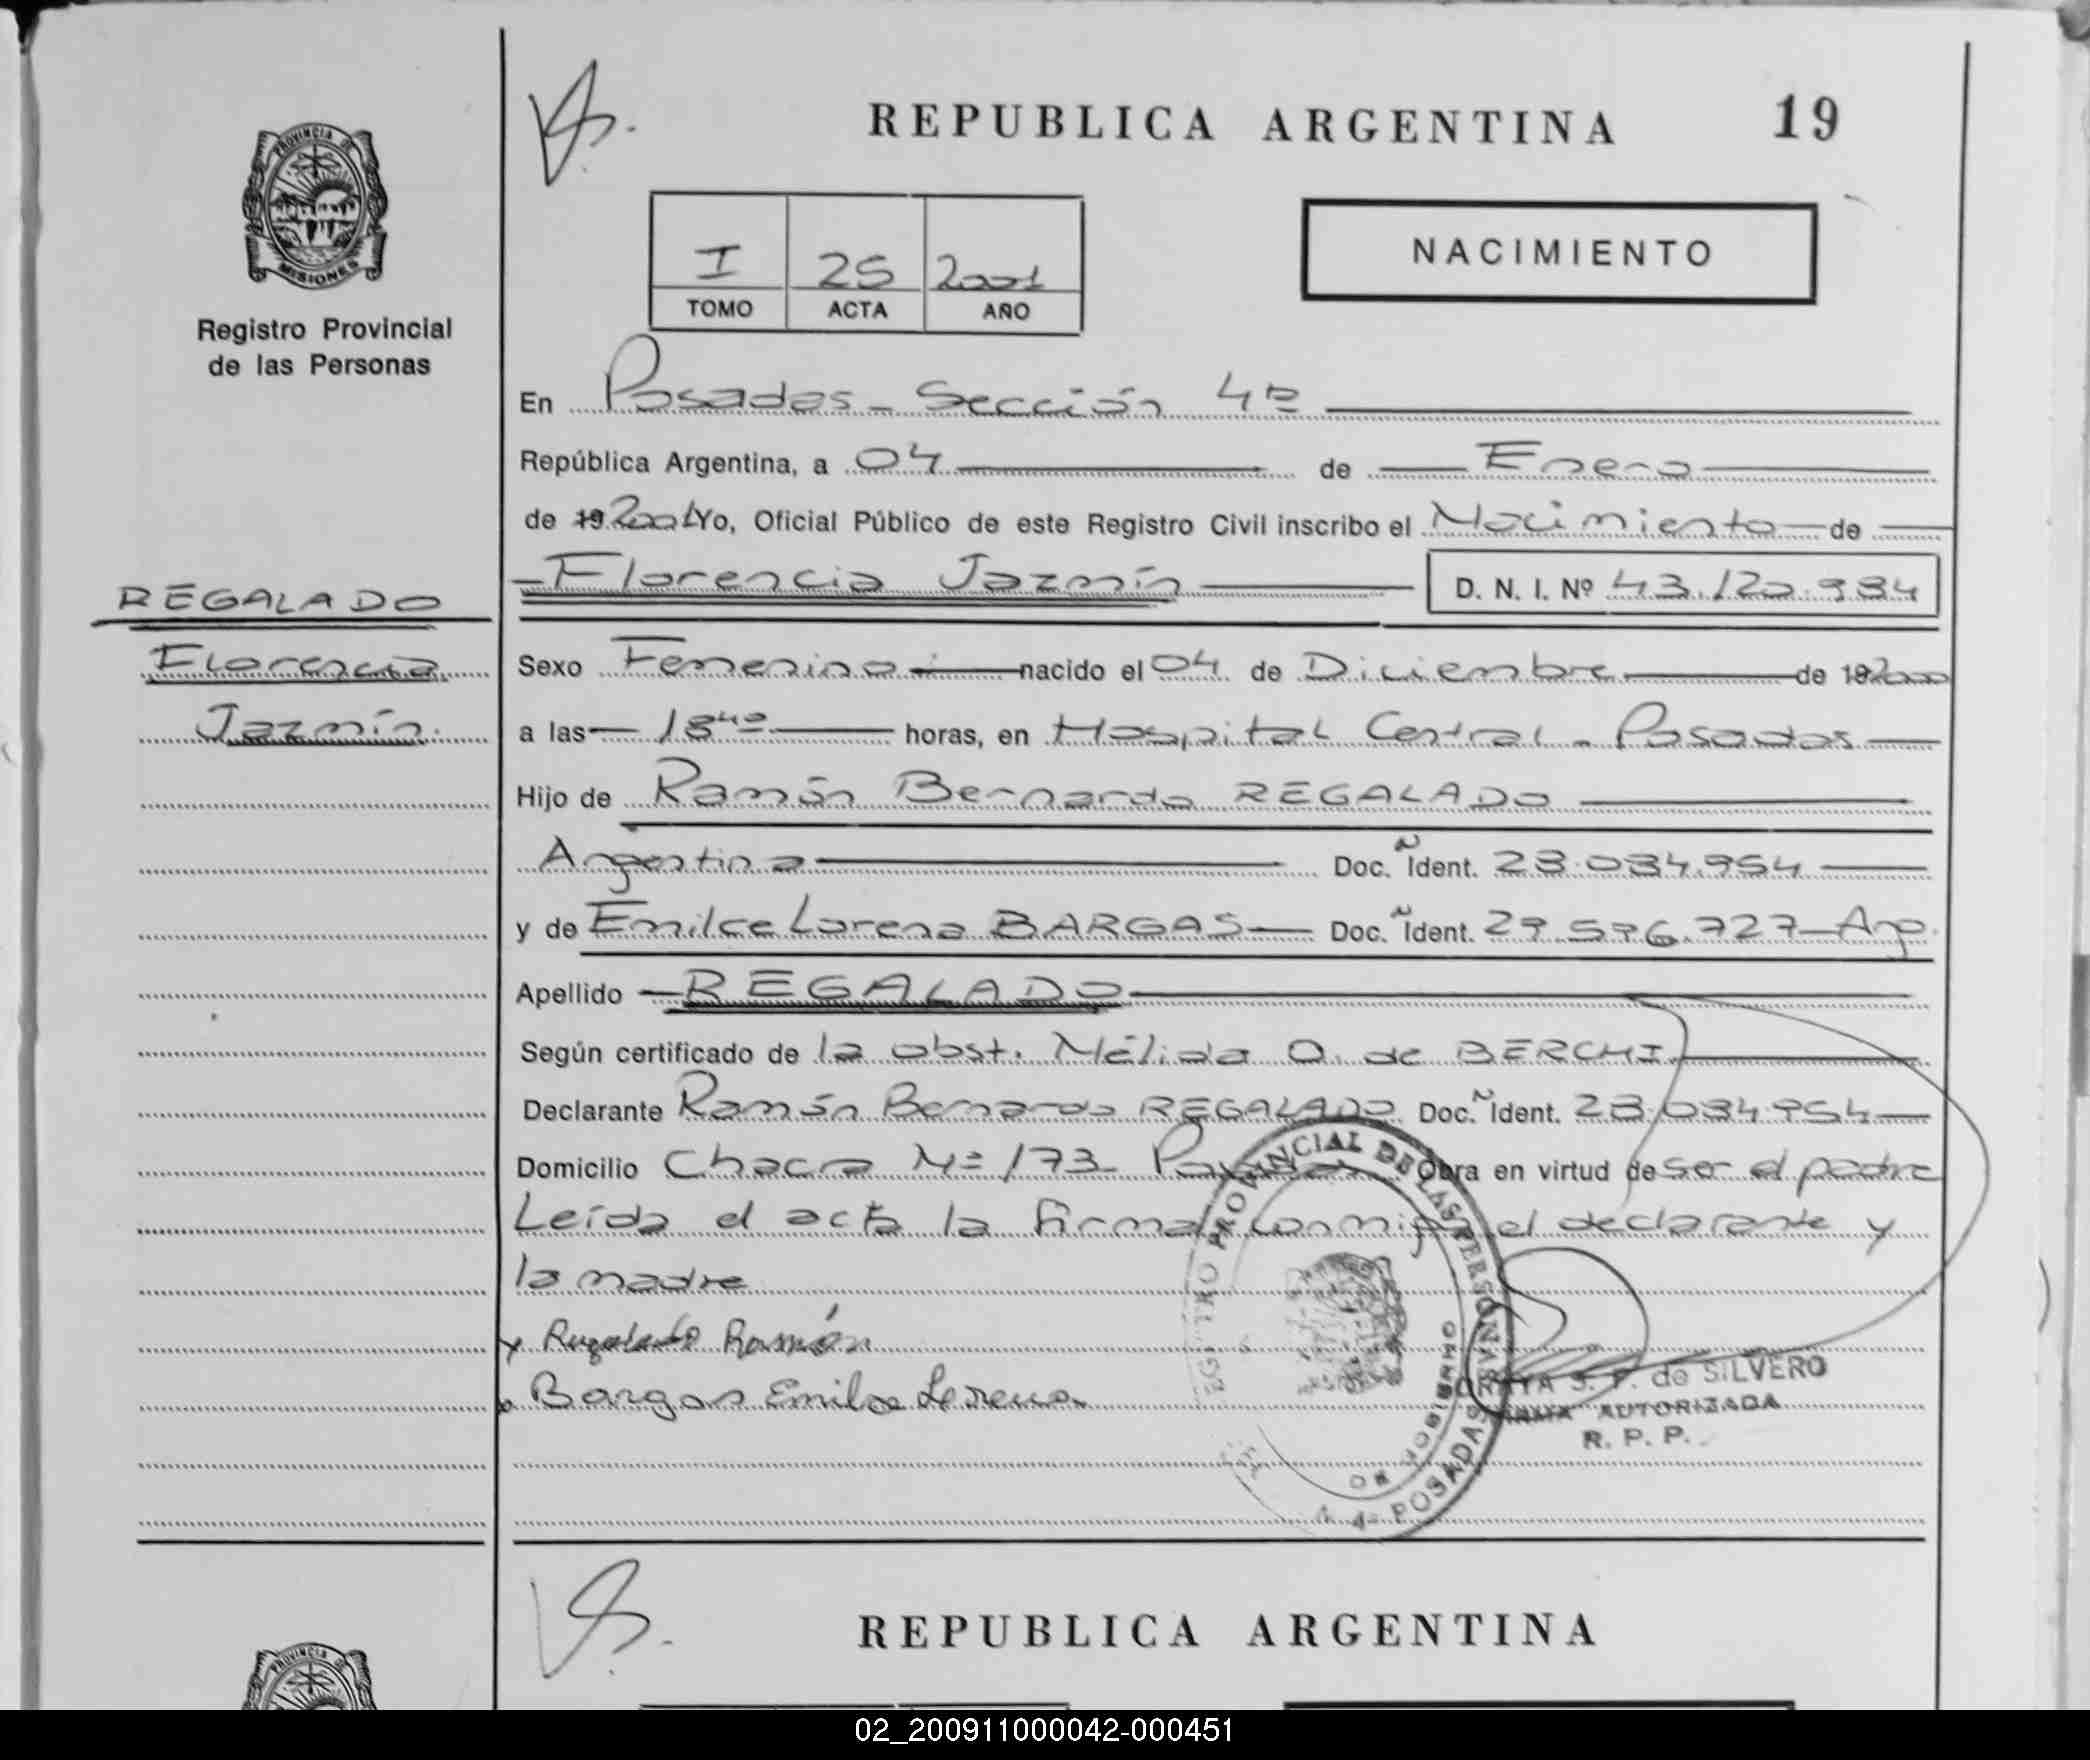 REPUBLICA ARGENTINA 19
PROVINCIA DE
MISIONES
Registro Provincial
de las Personas
I 25 2001
TOMO ACTA AÑO
NACIMIENTO
En Posadas - Sección 4ª
República Argentina, a 04 de Enero
de 19 2001 Yo, Oficial Público de este Registro Civil inscribo el Nacimiento de
Florencia Jazmín D. N. I. Nº 43.120.984
REGALADO
Florencia
Jazmín.
Sexo Femenino nacido el 04 de Diciembre de 19 2000
a las 18⁴⁰ horas, en Hospital Central - Posadas
Hijo de Ramón Bernardo REGALADO
Argentina Doc. Ident. 23.034.954
y de Emilce Lorena BARGAS Doc. Ident. 29.596.727 Arg.
Apellido REGALADO
Según certificado de la obst. Mélida O. de BERCHI
Declarante Ramón Bernardo REGALADO Doc. Ident. 23.034.954
Domicilio Chacra Nº 173 Posadas Obra en virtud de ser el padre
Leída el acta la firma conmigo el declarante y
la madre
Regalado Ramón
Bargas Emilce Lorena
REGISTRO PROVINCIAL DE LAS PERSONAS
POSADAS
S. F. de SILVERO
FIRMA AUTORIZADA
R. P. P.
REPUBLICA ARGENTINA
PROVINCIA DE
02_200911000042-000451